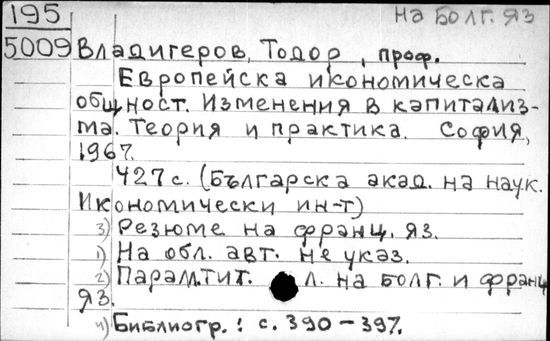 195
5009
на Болг. яз
Владигеров, Тодор, проф.
Европейска икономическа
общност. Изменения в капитализ-
ма. Теория и практика. София,
1967.
427 с. (Българска акад. на наук.
Икономически ин-т)
3) Резюме на франц. яз.
1) На обл. авт. не указ.
2) Парал. тит. л. на болг. и франц
яз.
4) Библиогр.: с. 390-397.